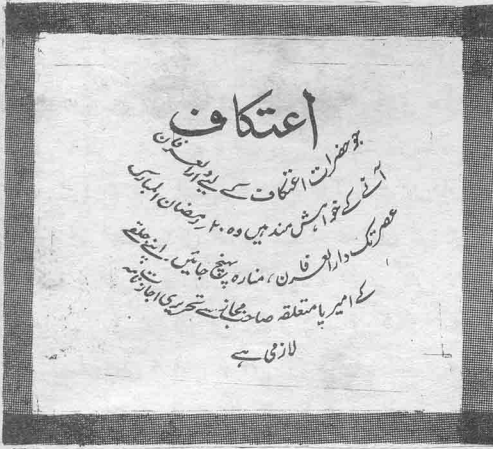 اعتکاف
جو حضرات اعتکاف کے لیے دارالعرفان
آنے کے خواہش مند ہیں وہ ۲۰ رمضان المبارک
عصر تک دارالعرفان، منارہ پہنچ جائیں۔ اپنے حلقے
کے امیر یا متعلقہ صاحب مجاز سے تحریری اجازت نامہ
لازمی ہے